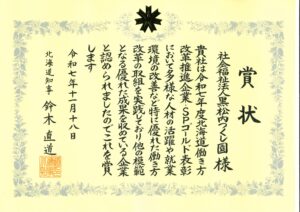 賞状
社会福祉法人黒松内つくし園様
貴社は令和七年度北海道働き方
改革推進企業(SDGsゴールド)表彰
において多様な人材の活躍や就業
環境の改善など特に優れた働き方
改革の取組を実践しており他の模範
となる優れた成果を収めている企業
と認められましたのでこれを賞
します
令和七年十一月十八日
北海道知事 鈴木直道